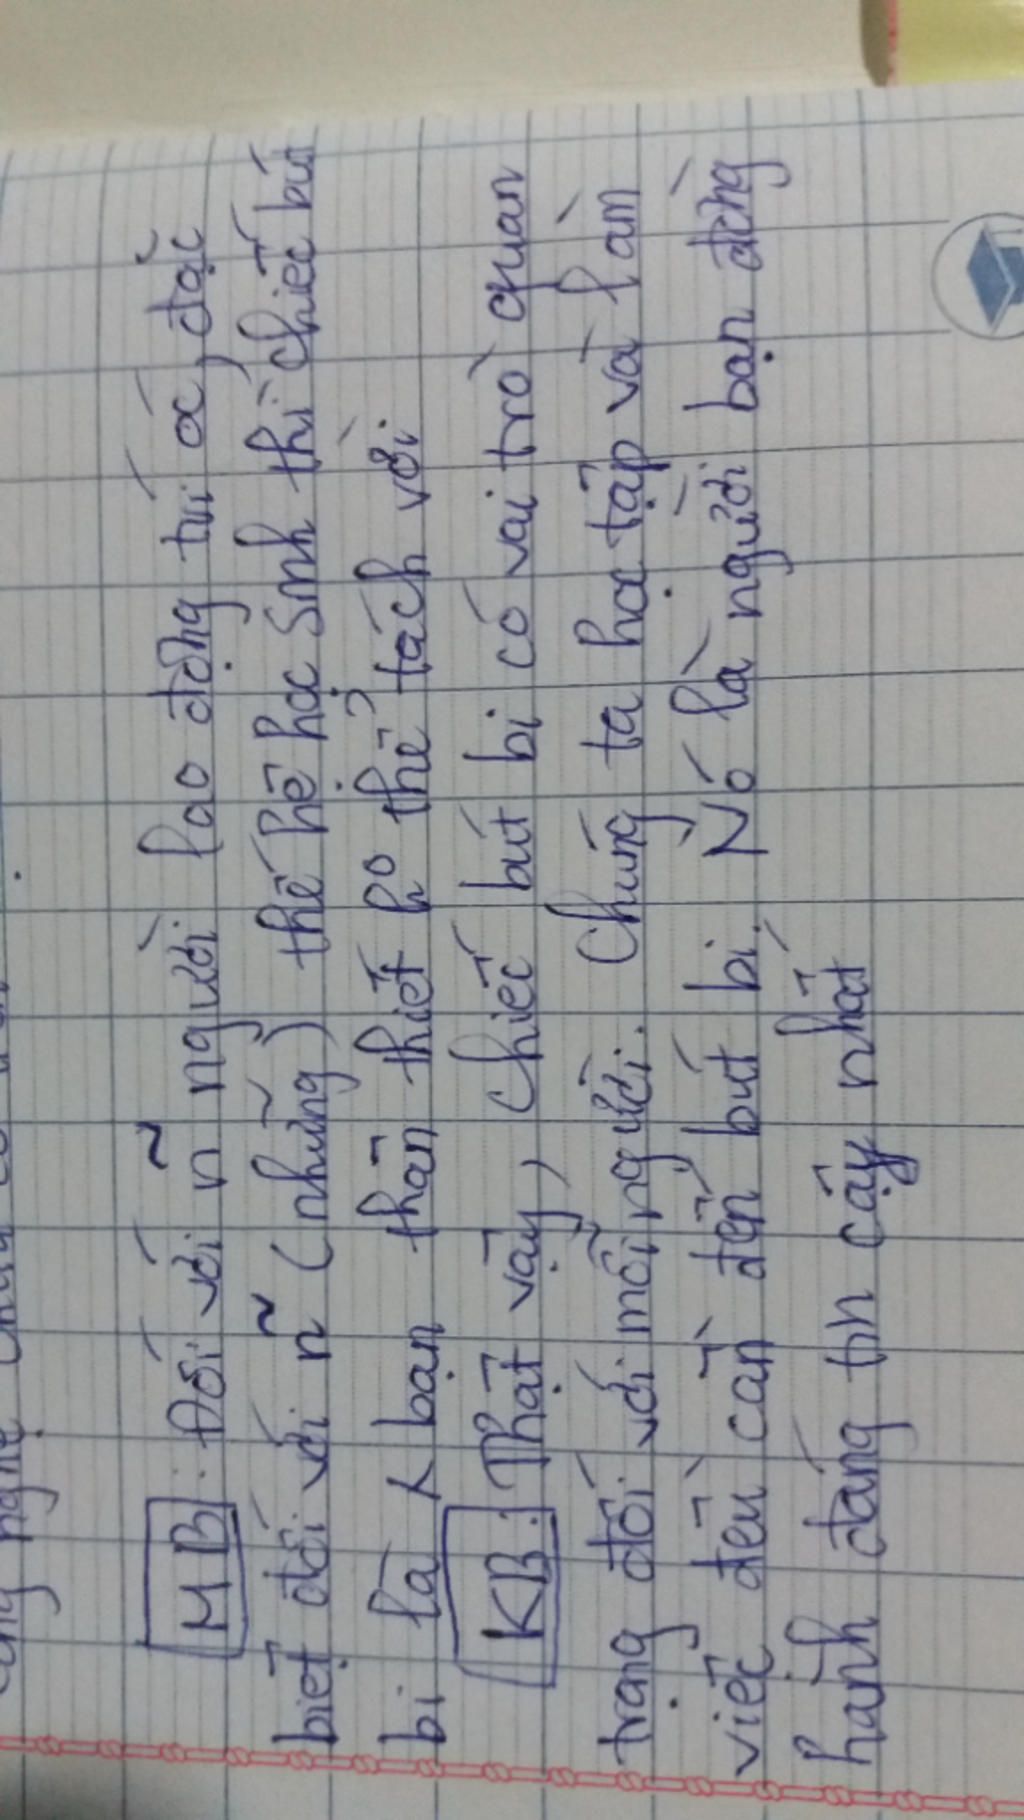 MB: Đối với ñ người lao động trí óc, đặc
biệt đối với ñ (những) thế hệ học sinh thì chiếc bút
bi là 1 bạn thân thiết ko thể tách vời
KB: Thật vậy, chiếc bút bi có vai trò quan
trọng đối với mỗi người. Chúng ta học tập và làm
việc đều cần đến bút bi. Nó là người bạn đồng
hành đáng tin cậy nhất